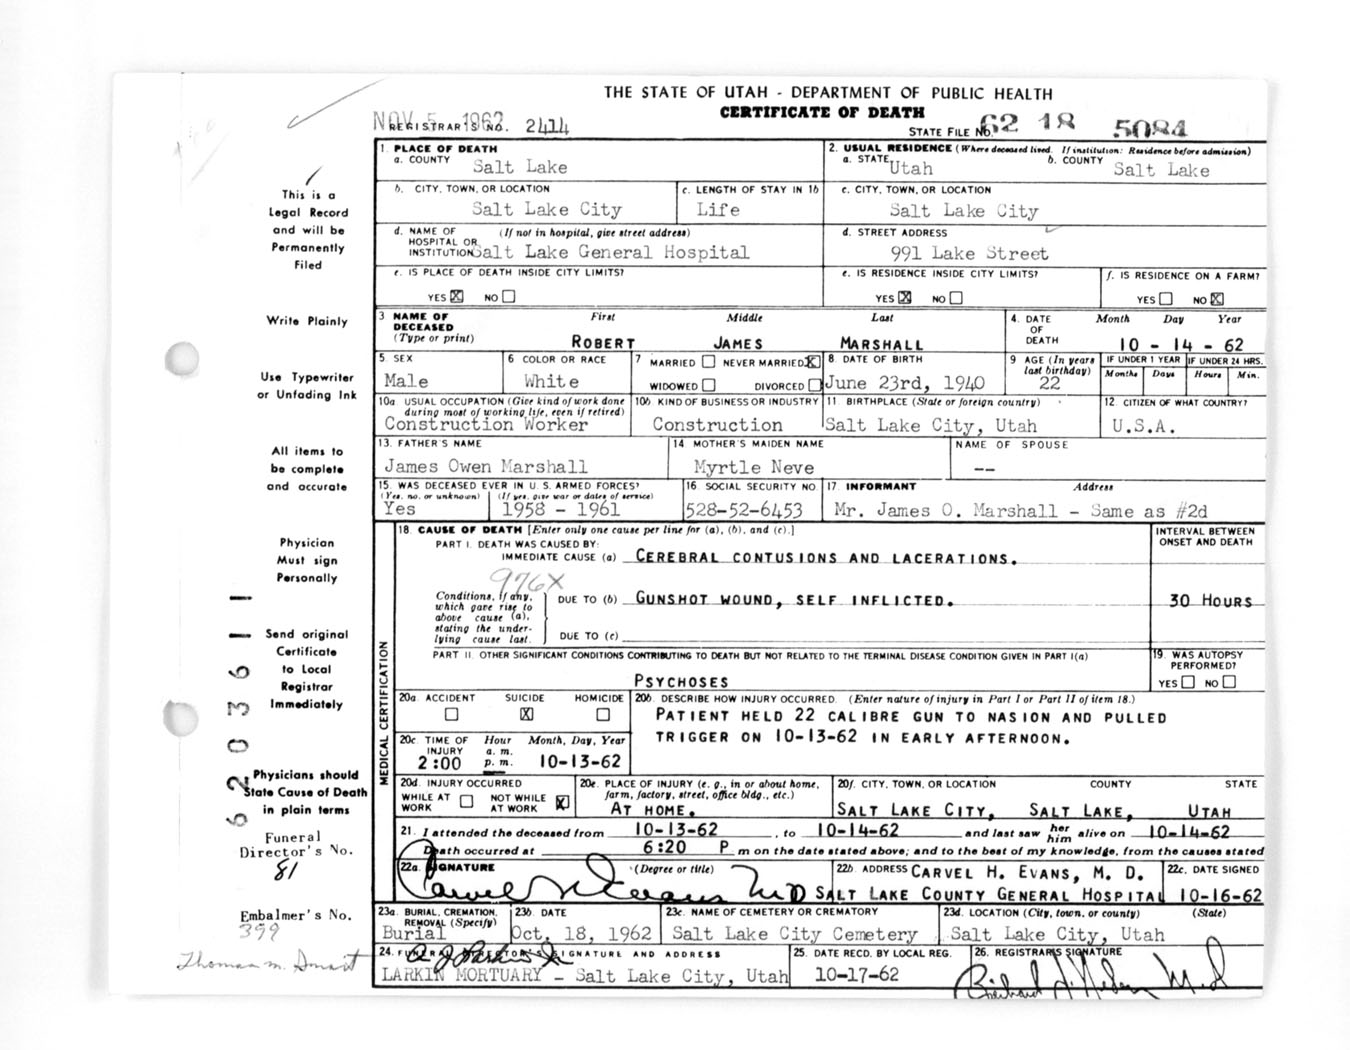 THE STATE OF UTAH - DEPARTMENT OF PUBLIC HEALTH
CERTIFICATE OF DEATH
NOV 5 1962
REGISTRAR'S NO. 2414
STATE FILE NO. 62 18 5084
1. PLACE OF DEATH
a. COUNTY Salt Lake
2. USUAL RESIDENCE (Where deceased lived. If institution: Residence before admission)
a. STATE Utah b. COUNTY Salt Lake
b. CITY, TOWN, OR LOCATION Salt Lake City
c. LENGTH OF STAY IN 1b Life
c. CITY, TOWN, OR LOCATION Salt Lake City
d. NAME OF HOSPITAL OR INSTITUTION (If not in hospital, give street address) Salt Lake General Hospital
d. STREET ADDRESS 991 Lake Street
e. IS PLACE OF DEATH INSIDE CITY LIMITS? YES ☒ NO ☐
e. IS RESIDENCE INSIDE CITY LIMITS? YES ☒ NO ☐
f. IS RESIDENCE ON A FARM? YES ☐ NO ☒
3 NAME OF DECEASED (Type or print) First Middle Last
ROBERT JAMES MARSHALL
4. DATE OF DEATH Month Day Year
10 - 14 - 62
5. SEX Male
6 COLOR OR RACE White
7 MARRIED ☐ NEVER MARRIED ☒
WIDOWED ☐ DIVORCED ☐
8. DATE OF BIRTH June 23rd, 1940
9 AGE (In years last birthday) 22
IF UNDER 1 YEAR Months Days
IF UNDER 24 HRS. Hours Min.
10a USUAL OCCUPATION (Give kind of work done during most of working life, even if retired) Construction Worker
10b KIND OF BUSINESS OR INDUSTRY Construction
11. BIRTHPLACE (State or foreign country) Salt Lake City, Utah
12. CITIZEN OF WHAT COUNTRY? U.S.A.
13. FATHER'S NAME James Owen Marshall
14 MOTHER'S MAIDEN NAME Myrtle Neve
NAME OF SPOUSE --
15. WAS DECEASED EVER IN U. S. ARMED FORCES?
(Yes, no, or unknown) Yes
(If yes, give war or dates of service) 1958 - 1961
16 SOCIAL SECURITY NO 528-52-6453
17 INFORMANT Address
Mr. James O. Marshall - Same as #2d
18. CAUSE OF DEATH [Enter only one cause per line for (a), (b), and (c).]
PART I. DEATH WAS CAUSED BY:
IMMEDIATE CAUSE (a) CEREBRAL CONTUSIONS AND LACERATIONS.
976X
Conditions, if any, which gave rise to above cause (a), stating the underlying cause last.
DUE TO (b) GUNSHOT WOUND, SELF INFLICTED.
DUE TO (c)
INTERVAL BETWEEN ONSET AND DEATH
30 HOURS
PART II. OTHER SIGNIFICANT CONDITIONS CONTRIBUTING TO DEATH BUT NOT RELATED TO THE TERMINAL DISEASE CONDITION GIVEN IN PART I(a)
PSYCHOSES
19. WAS AUTOPSY PERFORMED?
YES ☐ NO ☐
20a. ACCIDENT ☐ SUICIDE ☒ HOMICIDE ☐
20b. DESCRIBE HOW INJURY OCCURRED. (Enter nature of injury in Part I or Part II of item 18.)
PATIENT HELD 22 CALIBRE GUN TO NASION AND PULLED
TRIGGER ON 10-13-62 IN EARLY AFTERNOON.
20c. TIME OF INJURY Hour a. m. p. m. Month, Day, Year
2:00 10-13-62
20d. INJURY OCCURRED
WHILE AT WORK ☐ NOT WHILE AT WORK ☒
20e. PLACE OF INJURY (e. g., in or about home, farm, factory, street, office bldg., etc.)
AT HOME.
20f. CITY, TOWN, OR LOCATION COUNTY STATE
SALT LAKE CITY, SALT LAKE, UTAH
21. I attended the deceased from 10-13-62, to 10-14-62 and last saw her him alive on 10-14-62
Death occurred at 6:20 P m on the date stated above; and to the best of my knowledge, from the causes stated
22a. SIGNATURE (Degree or title)
Carvel H Evans MD
22b. ADDRESS CARVEL H. EVANS, M. D.
SALT LAKE COUNTY GENERAL HOSPITAL
22c. DATE SIGNED 10-16-62
23a. BURIAL, CREMATION, REMOVAL (Specify) Burial
23b. DATE Oct. 18, 1962
23c. NAME OF CEMETERY OR CREMATORY Salt Lake City Cemetery
23d. LOCATION (City, town, or county) (State) Salt Lake City, Utah
24. FUNERAL DIRECTOR'S SIGNATURE AND ADDRESS
LARKIN MORTUARY - Salt Lake City, Utah
25. DATE RECD. BY LOCAL REG. 10-17-62
26. REGISTRAR'S SIGNATURE
MEDICAL CERTIFICATION
This is a
Legal Record
and will be
Permanently
Filed
Write Plainly
Use Typewriter
or Unfading Ink
All items to
be complete
and accurate
Physician
Must sign
Personally
Send original
Certificate
to Local
Registrar
Immediately
Physicians should
State Cause of Death
in plain terms
Funeral
Director's No.
81
Embalmer's No.
399
Thomas M. Smart